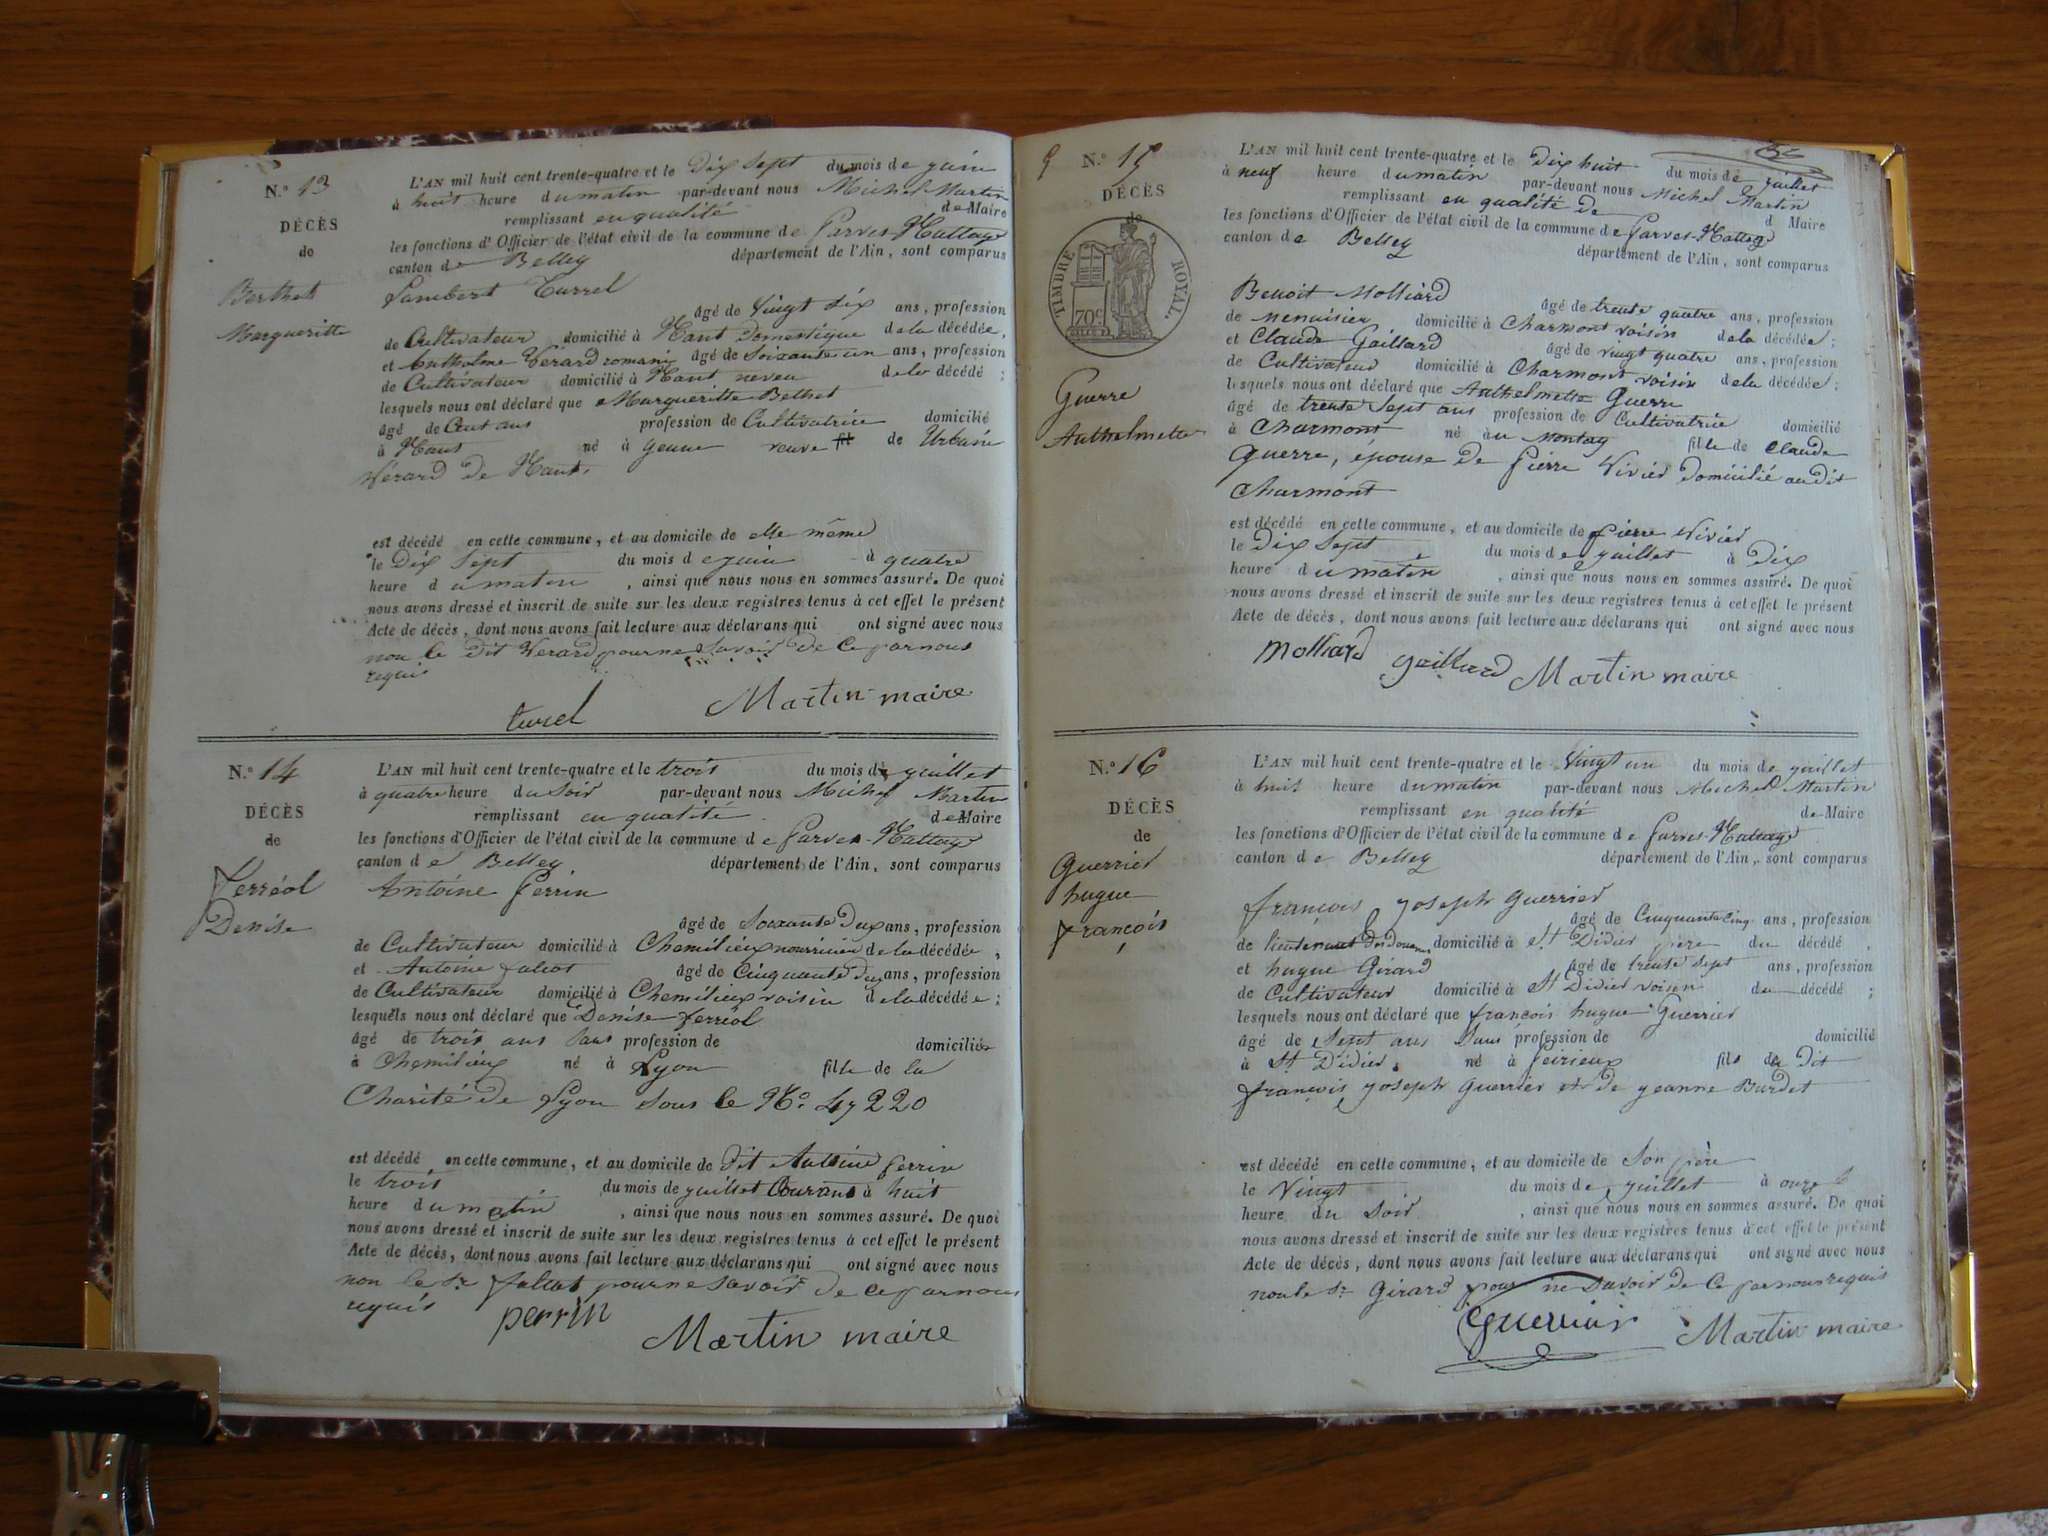 N.° 13
DÉCÈS
de
Berthet
Margueritte
L'AN mil huit cent trente-quatre et le Dix Sept du mois de juin
à huit heure du matin par-devant nous Michel Martin
remplissant en qualité de Maire
les fonctions d'Officier de l'état civil de la commune de Parves-Nattage
canton de Belley département de l'Ain, sont comparus
Lambert Turrel
âgé de Vingt Six ans, profession
de Cultivateur domicilié à Nant Domestique de la décédée,
et Anthelme Vérard romani âgé de Soixante un ans, profession
de Cultivateur domicilié à Nant neveu de la décédé ;
lesquels nous ont déclaré que Margueritte Bethet
âgé de Cent ans profession de Cultivatrice domicilié
à Nant né à Yenne veuve fil de Urbain
Vérard de Nant,
est décédé en cette commune, et au domicile de elle même
le Dix Sept du mois de juin à quatre
heure du matin, ainsi que nous nous en sommes assuré. De quoi
nous avons dressé et inscrit de suite sur les deux registres tenus à cet effet le présent
Acte de décès, dont nous avons fait lecture aux déclarans qui ont signé avec nous
non le dit Vérard pour ne Savoir de ce par nous
requis
turel Martin maire
N.° 14
DÉCÈS
de
Ferréol
Denise
L'AN mil huit cent trente-quatre et le trois du mois de juillet
à quatre heure du Soir par-devant nous Michel Martin
remplissant en qualité de Maire
les fonctions d'Officier de l'état civil de la commune de Parves-Nattage
canton de Belley département de l'Ain, sont comparus
Antoine Perrin
âgé de Soixante Deux ans, profession
de Cultivateur domicilié à Chemilieu nourricier de la décédée,
et Antoine âgé de Cinquante deux ans, profession
de Cultivateur domicilié à Chemilieux voisin de la décédée ;
lesquels nous ont déclaré que Denise Ferréol
âgé de trois ans Sans profession de domiciliée
à Chemilieux né à Lyon fille de la
Charité de Lyon Sous le N.° 47220
est décédé en cette commune, et au domicile de dit Antoine Perrin
le trois du mois de juillet Courant à huit
heure du matin, ainsi que nous nous en sommes assuré. De quoi
nous avons dressé et inscrit de suite sur les deux registres tenus à cet effet le présent
Acte de décès, dont nous avons fait lecture aux déclarans qui ont signé avec nous
non le Sr. pour ne Savoir de ce par nous
requis perrin
Martin maire
9 N.° 15
DÉCÈS
de
TIMBRE ROYAL.
70c
Guerre
Anthelmette
L'AN mil huit cent trente-quatre et le Dix huit du mois de juillet
à neuf heure du matin par-devant nous Michel Martin
remplissant en qualité de d Maire
les fonctions d'Officier de l'état civil de la commune de Parves-Nattage
canton de Belley département de l'Ain, sont comparus
Benoit Molliard
âgé de trente quatre ans, profession
de Menuisier domicilié à Charmont voisin de la décédée ;
et Claude Gaillard âgé de vingt quatre ans, profession
de Cultivateur domicilié à Charmont voisin de la décédée ;
lesquels nous ont déclaré que Anthelmette Guerre
âgé de trente Sept ans profession de Cultivatrice domicilié
à Charmont né au Montag fille de Claude
Guerre, épouse de Pierre Vivier domicilié au dit
Charmont
est décédé en cette commune, et au domicile de Pierre Vivier
le Dix Sept du mois de juillet à Dix
heure du matin, ainsi que nous nous en sommes assuré. De quoi
nous avons dressé et inscrit de suite sur les deux registres tenus à cet effet le présent
Acte de décès, dont nous avons fait lecture aux déclarans qui ont signé avec nous
Molliard gaillard Martin maire
N.° 16
DÉCÈS
de
Guerrier
hugue
françois
L'AN mil huit cent trente-quatre et le Vingt un du mois de juillet
à huit heure du matin par-devant nous Michel Martin
remplissant en qualité de Maire
les fonctions d'Officier de l'état civil de la commune de Parves-Nattage
canton de Belley département de l'Ain, sont comparus
françois joseph Guerrier
âgé de Cinquante Cinq ans, profession
de lieutenant des Douanes domicilié à St Didier père du décédé,
et hugue Girard âgé de trente Sept ans, profession
de Cultivateur domicilié à St Didier voisin du décédé ;
lesquels nous ont déclaré que françois hugue Guerrier
âgé de Sept ans Sans profession de domicilié
à St Didier, né à Peirieux fils du dit
françois joseph Guerrier et de jeanne Burdet
est décédé en cette commune, et au domicile de Son père
le Vingt du mois de juillet à onze
heure du Soir, ainsi que nous nous en sommes assuré. De quoi
nous avons dressé et inscrit de suite sur les deux registres tenus à cet effet le présent
Acte de décès, dont nous avons fait lecture aux déclarans qui ont signé avec nous
non le Sr. Girard pour ne Savoir de ce par nous requis
Guerrier Martin maire